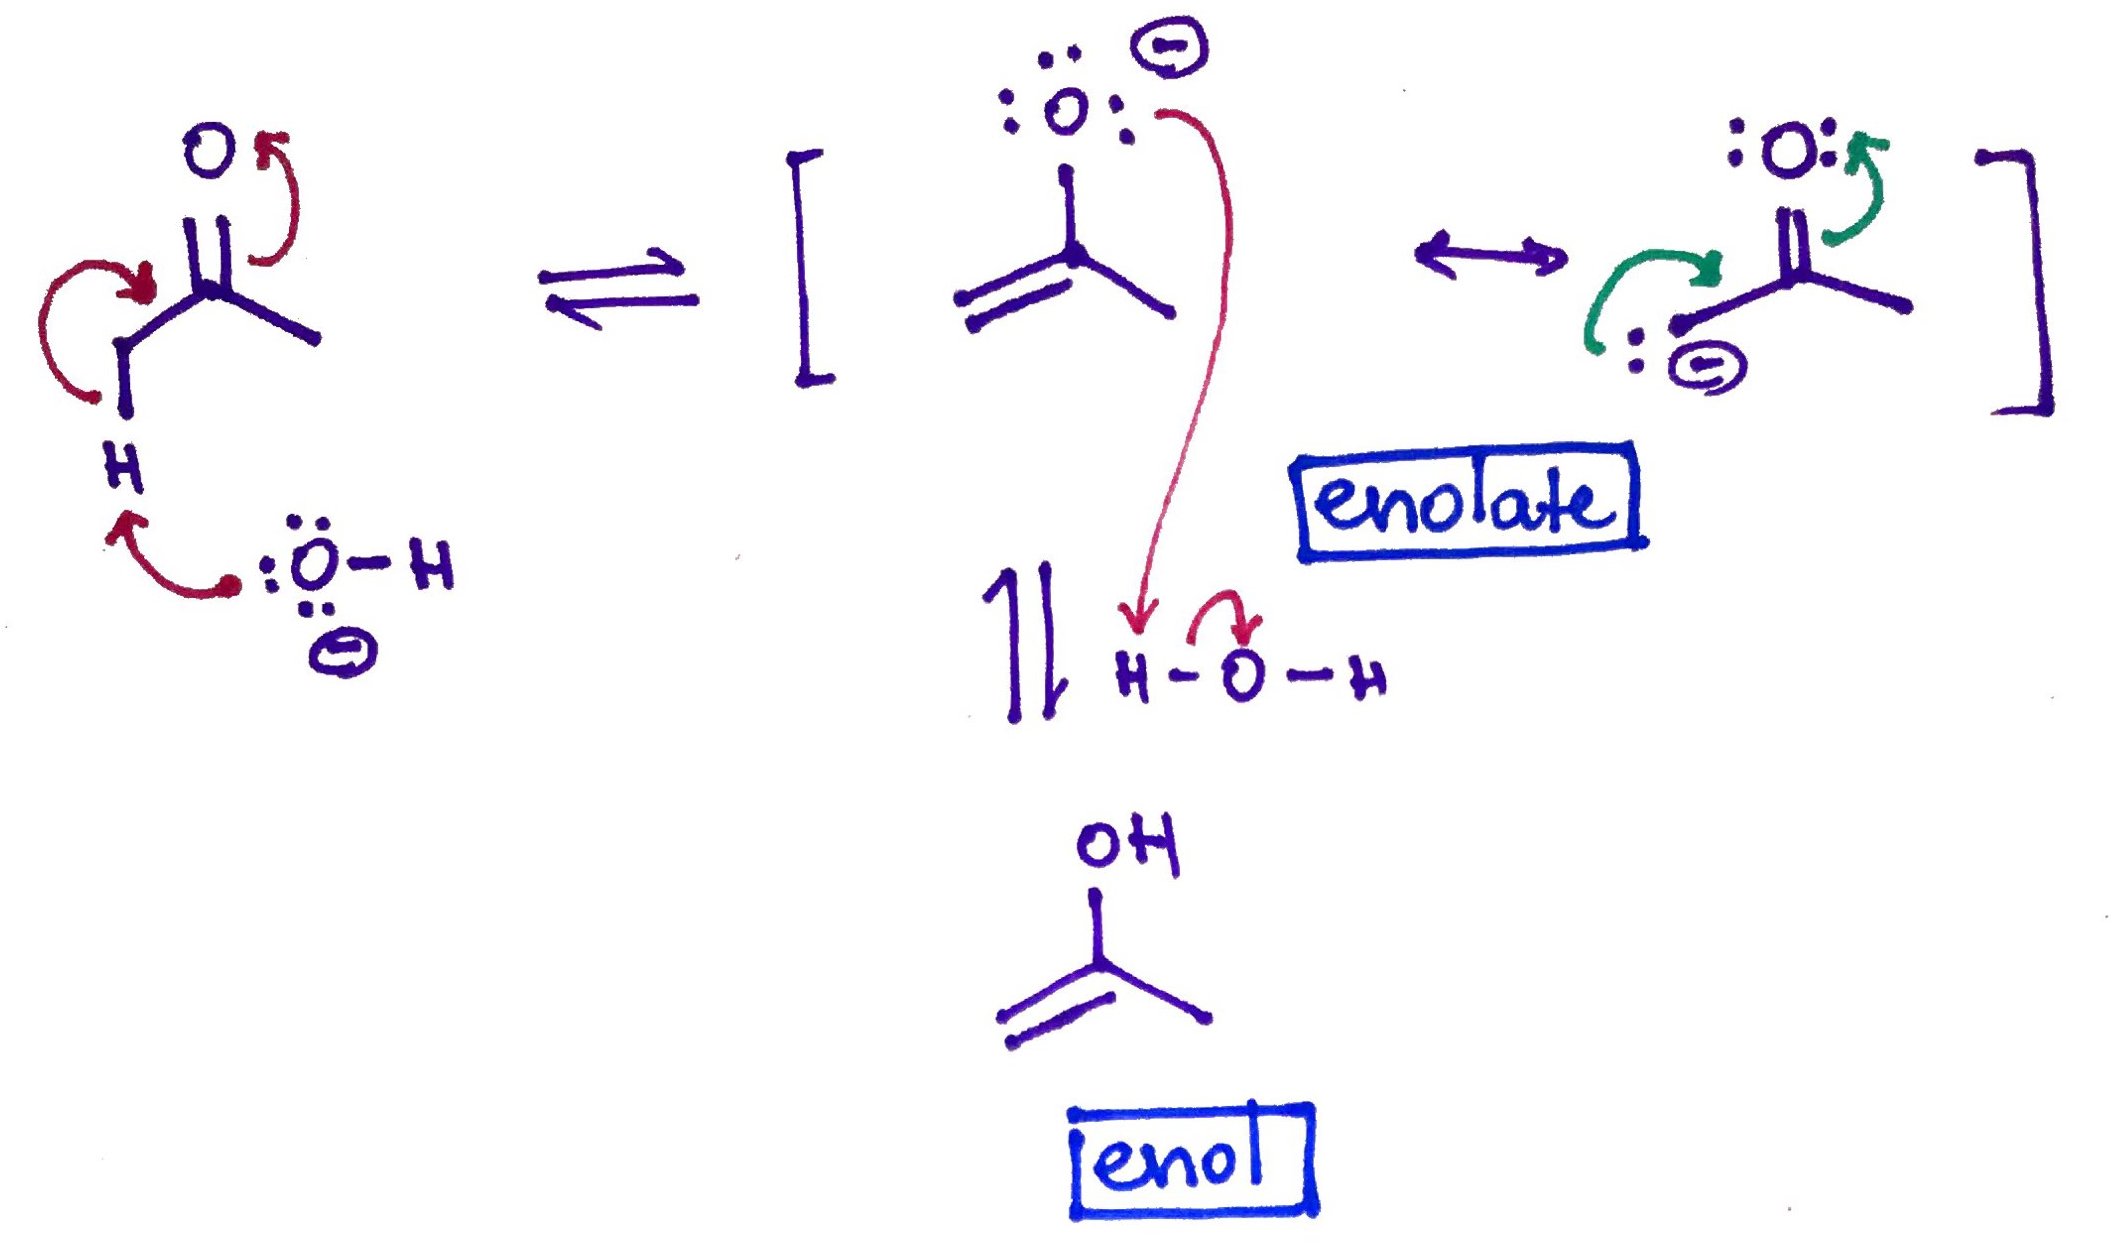 O
H
O – H
⊖
O
⊖
O
⊖
enolate
H – O – H
OH
enol